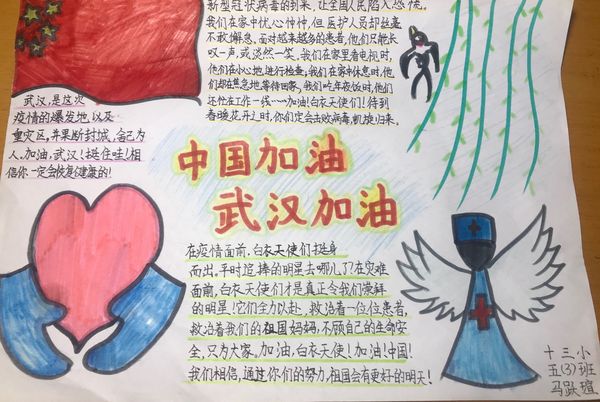 新型冠状病毒的到来,让全国人民陷入恐慌。
我们在家中忧心忡忡,但医护人员却丝毫
不敢懈怠。面对越来越多的患者,他们只能长
叹一声,或淡然一笑。我们在家里看电视时,
他们在小心地进行检查,我们在家中休息时,他
们却在焦急地等待回家,我们吃年夜饭时,他们
还忙在工作一线……加油!白衣天使们!待到
春晚花开之时,你们定会击败病毒,凯旋归来。
武汉,是这次
疫情的爆发地,以及
重灾区,并果断封城,舍己为
人。加油,武汉!挺住哇!相
信你一定会恢复健康的!
中国加油
武汉加油
在疫情面前,白衣天使们挺身
而出,平时追捧的明星去哪儿了?在灾难
面前,白衣天使们才是真正令我们崇拜
的明星!它们全力以赴,救治着一位位患者,
救治着我们的祖国妈妈,不顾自己的生命安
全,只为大家。加油,白衣天使!加油!中国!
我们相信,通过你们的努力,祖国会有更好的明天!
十三小
五(3)班
马跃瑄